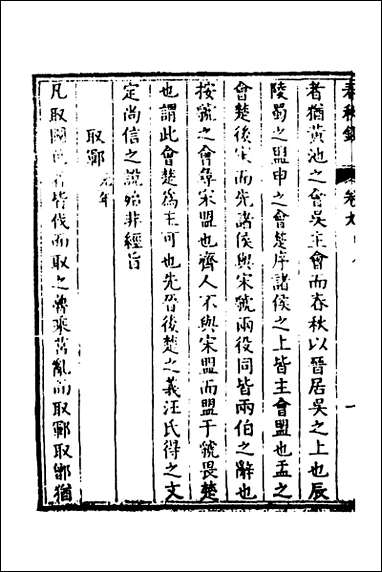 春秋鈔 卷九
者猶黃池之會吳主會而春秋以晉居吳之上也辰
陵蜀之盟申之會楚序諸侯之上皆主會盟也盂之
會楚後宋而先諸侯與宋虢兩役同皆兩伯之辭也
按虢之會尋宋盟也齊人不與宋盟而盟于虢畏楚
也謂此會楚為主可也先晉後楚之義汪氏得之文
定尚信之說殆非經旨
取鄆 元年
凡取國邑者皆伐而取之魯乘莒亂而取鄆取鄫猶